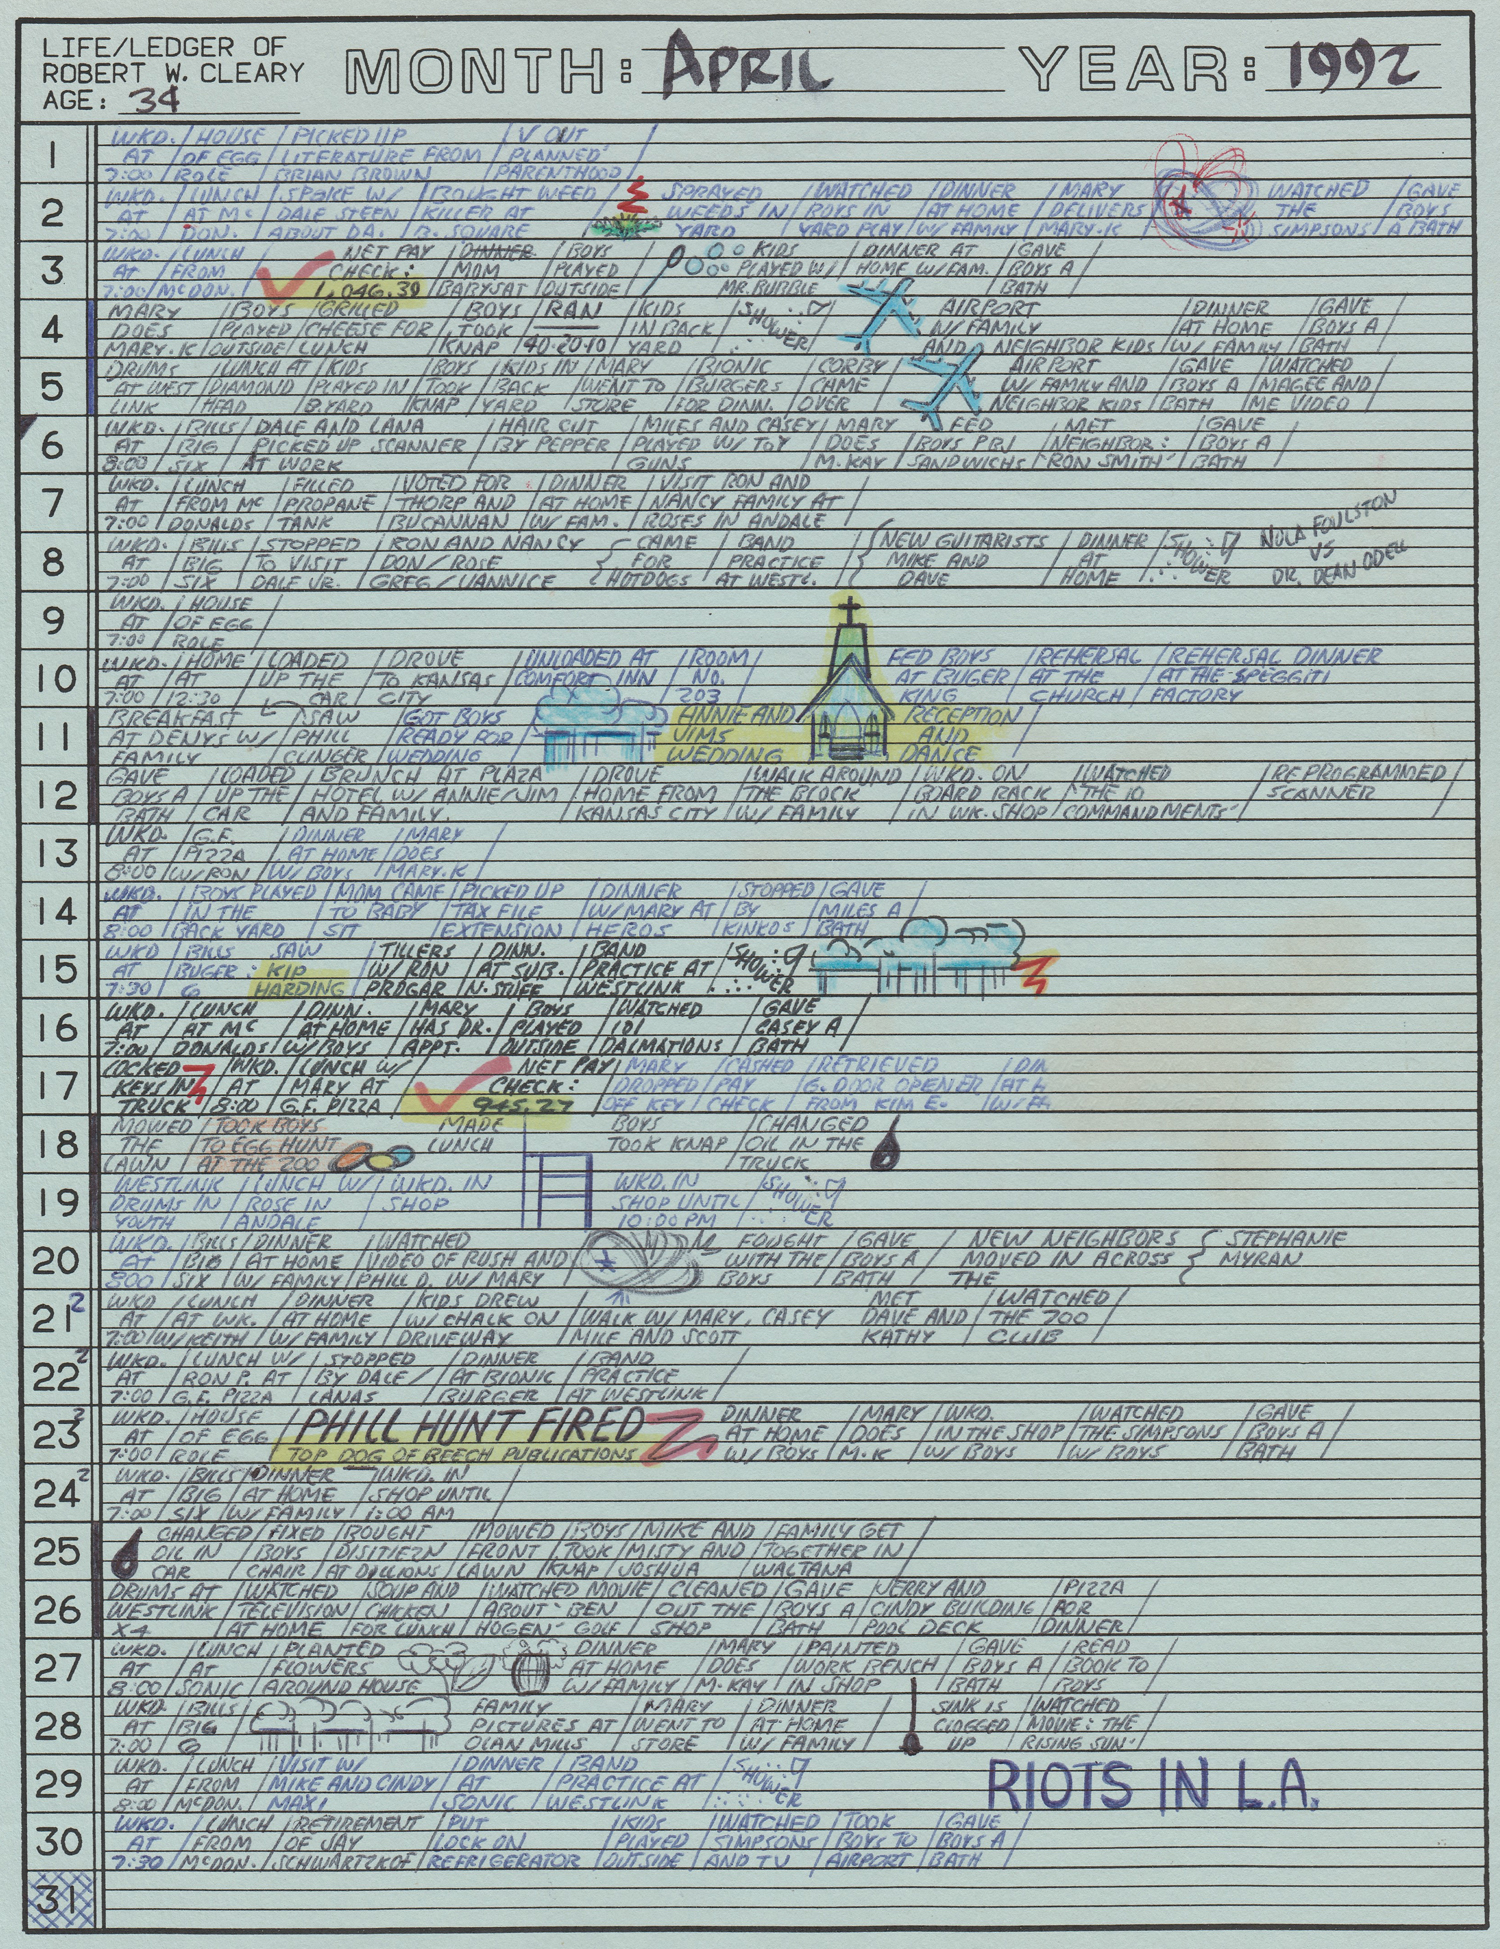 LIFE/LEDGER OF
ROBERT W. CLEARY
AGE: 34
MONTH: APRIL
YEAR: 1992
1
WKD. / HOUSE / PICKED UP / V OUT /
AT / OF EGG / LITERATURE FROM / PLANNED
7:00 / ROLE / BRIAN BROWN / PARENTHOOD /
2
WKD. / LUNCH / SPOKE W/ / BOUGHT WEED / SPRAYED / WATCHED / DINNER / MARY / WATCHED / GAVE
AT / AT Mc / DALE STEEN / KILLER AT / WEEDS IN / BOYS IN / AT HOME / DELIVERS / THE / BOYS
7:00 / DON. / ABOUT DA. / B. SQUARE / YARD / YARD PLAY / W/ FAMILY / MARY.K / SIMPSONS / A BATH
3
WKD. / LUNCH / NET PAY / DINNER / BOYS / KIDS / DINNER AT / GAVE /
AT / FROM / CHECK: / MOM / PLAYED / PLAYED W/ / HOME W/FAM. / BOYS A /
7:00 / McDON. / 1,046.39 / BABYSAT / OUTSIDE / MR. BUBBLE / BATH /
4
MARY / BOYS / GRILLED / BOYS / RAN / KIDS / SHOWER / AIRPORT / DINNER / GAVE /
DOES / PLAYED / CHEESE FOR / TOOK / IN BACK / W/ FAMILY / AT HOME / BOYS A /
MARY.K / OUTSIDE / LUNCH / KNAP / 40-20-10 / YARD / AND NEIGHBOR KIDS / W/ FAMILY / BATH /
5
DRUMS / LUNCH AT / KIDS / BOYS / KIDS IN / MARY / BIONIC / CORBY / AIRPORT / GAVE / WATCHED /
AT WEST / DIAMOND / PLAYED IN / TOOK / BACK / WENT TO / BURGERS / CAME / W/ FAMILY AND / BOYS A / MAGEE AND /
LINK / HEAD / B.YARD / KNAP / YARD / STORE / FOR DINN. / OVER / NEIGHBOR KIDS / BATH / ME VIDEO /
6
WKD. / BILLS / DALE AND LANA / HAIR CUT / MILES AND CASEY / MARY / FED / MET / GAVE /
AT / BIG / PICKED UP SCANNER / BY PEPPER / PLAYED W/ TOY / DOES / BOYS PBJ / NEIGHBOR: / BOYS A /
8:00 / SIX / AT WORK / GUNS / M.KAY / SANDWICHS / "RON SMITH" / BATH /
7
WKD. / LUNCH / FILLED / VOTED FOR / DINNER / VISIT RON AND /
AT / FROM Mc / PROPANE / THORP AND / AT HOME / NANCY FAMILY AT /
7:00 / DONALDS / TANK / BUCANNAN / W/ FAM. / ROSES IN ANDALE /
8
WKD. / BILLS / STOPPED / RON AND NANCY / CAME / BAND / NEW GUITARISTS / DINNER / SHOWER NOLA FOULSTON
AT / BIG / TO VISIT / DON / ROSE / FOR / PRACTICE / MIKE AND / AT / VS
7:00 / SIX / DALE JR. / GREG / JANNICE / HOTDOGS / AT WESTL. / DAVE / HOME / DR. DEAN ODELL
9
WKD. / HOUSE /
AT / OF EGG /
7:00 / ROLE /
10
WKD. / HOME / LOADED / DROVE / UNLOADED AT / ROOM / FED BOYS / REHERSAL / REHERSAL DINNER
AT / AT / UP THE / TO KANSAS / COMFORT INN / NO. / AT BUGER / AT THE / AT THE SPEGGITI
7:00 / 12:30 / CAR / CITY / 203 / KING / CHURCH / FACTORY /
11
BREAKFAST / SAW / GOT BOYS / ANNIE AND / RECEPTION /
AT DENYS W/ / PHILL / READY FOR / JIMS / AND /
FAMILY / CLINGER / WEDDING / WEDDING / DANCE /
12
GAVE / LOADED / BRUNCH AT PLAZA / DROVE / WALK AROUND / WKD. ON / WATCHED / REPROGRAMMED /
BOYS A / UP THE / HOTEL W/ ANNIE/JIM / HOME FROM / THE BLOCK / BOARD RACK / "THE 10 / SCANNER /
BATH / CAR / AND FAMILY. / KANSAS CITY / W/ FAMILY / IN WK.SHOP / COMMANDMENTS" /
13
WKD. / G.F. / DINNER / MARY /
AT / PIZZA / AT HOME / DOES /
8:00 / W/RON / W/ BOYS / MARY.K /
14
WKD. / BOYS PLAYED / MOM CAME / PICKED UP / DINNER / STOPPED / GAVE /
AT / IN THE / TO BABY / TAX FILE / W/MARY AT / BY / MILES A /
8:00 / BACK YARD / SIT / EXTENSION / HEROS / KINKOS / BATH /
15
WKD / BILLS / SAW / TILLERS / DINN. / BAND / SHOWER
AT / BUGER: / KIP / W/ RON / AT SUB. / PRACTICE AT /
7:30 / 6 / HARDING / PROGAR / N-STUFF / WESTLINK /
16
WKD. / LUNCH / DINN. / MARY / BOYS / WATCHED / GAVE /
AT / AT Mc / AT HOME / HAS DR. / PLAYED / 101 / CASEY A /
7:00 / DONALDS / W/ BOYS / APPT. / OUTSIDE / DALMATIONS / BATH /
17
LOCKED / WKD. / LUNCH W/ / NET PAY / MARY / CASHED / RETRIEVED / DIN
KEYS IN / AT / MARY AT / CHECK: / DROPPED / PAY / G. DOOR OPENER / AT H
TRUCK / 8:00 / G.F. PIZZA / 945.27 / OFF KEY / CHECK / FROM KIM E. / W/ FA
18
MOWED / TOOK BOYS / MADE / BOYS / CHANGED
THE / TO EGG HUNT / LUNCH / TOOK KNAP / OIL IN THE
LAWN / AT THE ZOO / TRUCK
19
WESTLINK / LUNCH W/ / WKD. IN / WKD. IN / SHOWER
DRUMS IN / ROSE IN / SHOP / SHOP UNTIL /
YOUTH / ANDALE / 10:00 PM /
20
WKD. / BILLS / DINNER / WATCHED / FOUGHT / GAVE / NEW NEIGHBORS / STEPHANIE
AT / BIG / AT HOME / VIDEO OF RUSH AND / WITH THE / BOYS A / MOVED IN ACROSS / MYRAN
8:00 / SIX / W/ FAMILY / PHILL D. W/ MARY / BOYS / BATH / THE
21 2
WKD / LUNCH / DINNER / KIDS DREW / MET / WATCHED /
AT / AT WK. / AT HOME / W/ CHALK ON / WALK W/ MARY, CASEY / DAVE AND / THE 700 /
7:00 / W/KEITH / W/ FAMILY / DRIVEWAY / MILE AND SCOTT / KATHY / CLUB /
22 2
WKD. / LUNCH W/ / STOPPED / DINNER / BAND /
AT / RON P. AT / BY DALE/ / AT BIONIC / PRACTICE /
7:00 / G.F. PIZZA / LANAS / BURGER / AT WESTLINK /
23 2
WKD. / HOUSE / PHILL HUNT FIRED / DINNER / MARY / WKD. / WATCHED / GAVE /
AT / OF EGG / AT HOME / DOES / IN THE SHOP / THE SIMPSONS / BOYS A /
7:00 / ROLE / TOP DOG OF BEECH PUBLICATIONS / W/ BOYS / M.K / W/ BOYS / W/ BOYS / BATH /
24 2
WKD. / BILLS / DINNER / WKD. IN /
AT / BIG / AT HOME / SHOP UNTIL /
7:00 / SIX / W/ FAMILY / 1:00 AM /
25
CHANGED / FIXED / BOUGHT / MOWED / BOYS / MIKE AND / FAMILY GET /
OIL IN / BOYS / DISITIEZN / FRONT / TOOK / MISTY AND / TOGETHER IN /
CAR / CHAIR / AT DILLIONS / LAWN / KNAP / JOSHUA / WALTANA /
26
DRUMS AT / WATCHED / SOUP AND / WATCHED MOVIE / CLEANED / GAVE / JERRY AND / PIZZA /
WESTLINK / TELEVISION / CHICKEN / ABOUT "BEN / OUT THE / BOYS A / CINDY BUILDING / FOR /
X4 / AT HOME / FOR LUNCH / HOGEN" GOLF / SHOP / BATH / POOL DECK / DINNER /
27
WKD. / LUNCH / PLANTED / DINNER / MARY / PAINTED / GAVE / READ /
AT / AT / FLOWERS / AT HOME / DOES / WORK BENCH / BOYS A / BOOK TO /
8:00 / SONIC / AROUND HOUSE / W/ FAMILY / M.KAY / IN SHOP / BATH / BOYS /
28
WKD. / BILLS / FAMILY / MARY / DINNER / SINK IS / WATCHED /
AT / BIG / PICTURES AT / WENT TO / AT HOME / CLOGGED / MOVIE: THE /
7:00 / 6 / OLAN MILLS / STORE / W/ FAMILY / UP / RISING SUN" /
29
WKD. / LUNCH / VISIT W/ / DINNER / BAND / SHOWER RIOTS IN L.A.
AT / FROM / MIKE AND CINDY / AT / PRACTICE AT /
8:00 / McDON. / MAXI / SONIC / WESTLINK /
30
WKD. / LUNCH / RETIREMENT / PUT / KIDS / WATCHED / TOOK / GAVE /
AT / FROM / OF JAY / LOCK ON / PLAYED / SIMPSONS / BOYS TO / BOYS A /
7:30 / McDON. / SCHWARTZKOF / REFRIGERATOR / OUTSIDE / AND TV / AIRPORT / BATH /
31